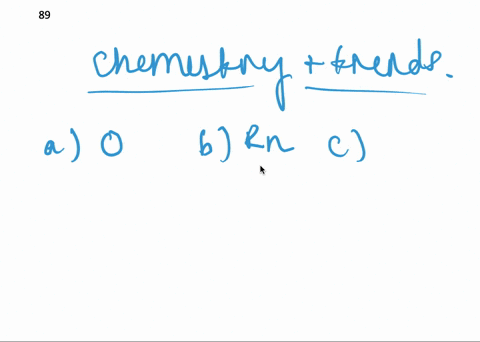 89
chemistry + trends.
a) O b) Rn c)